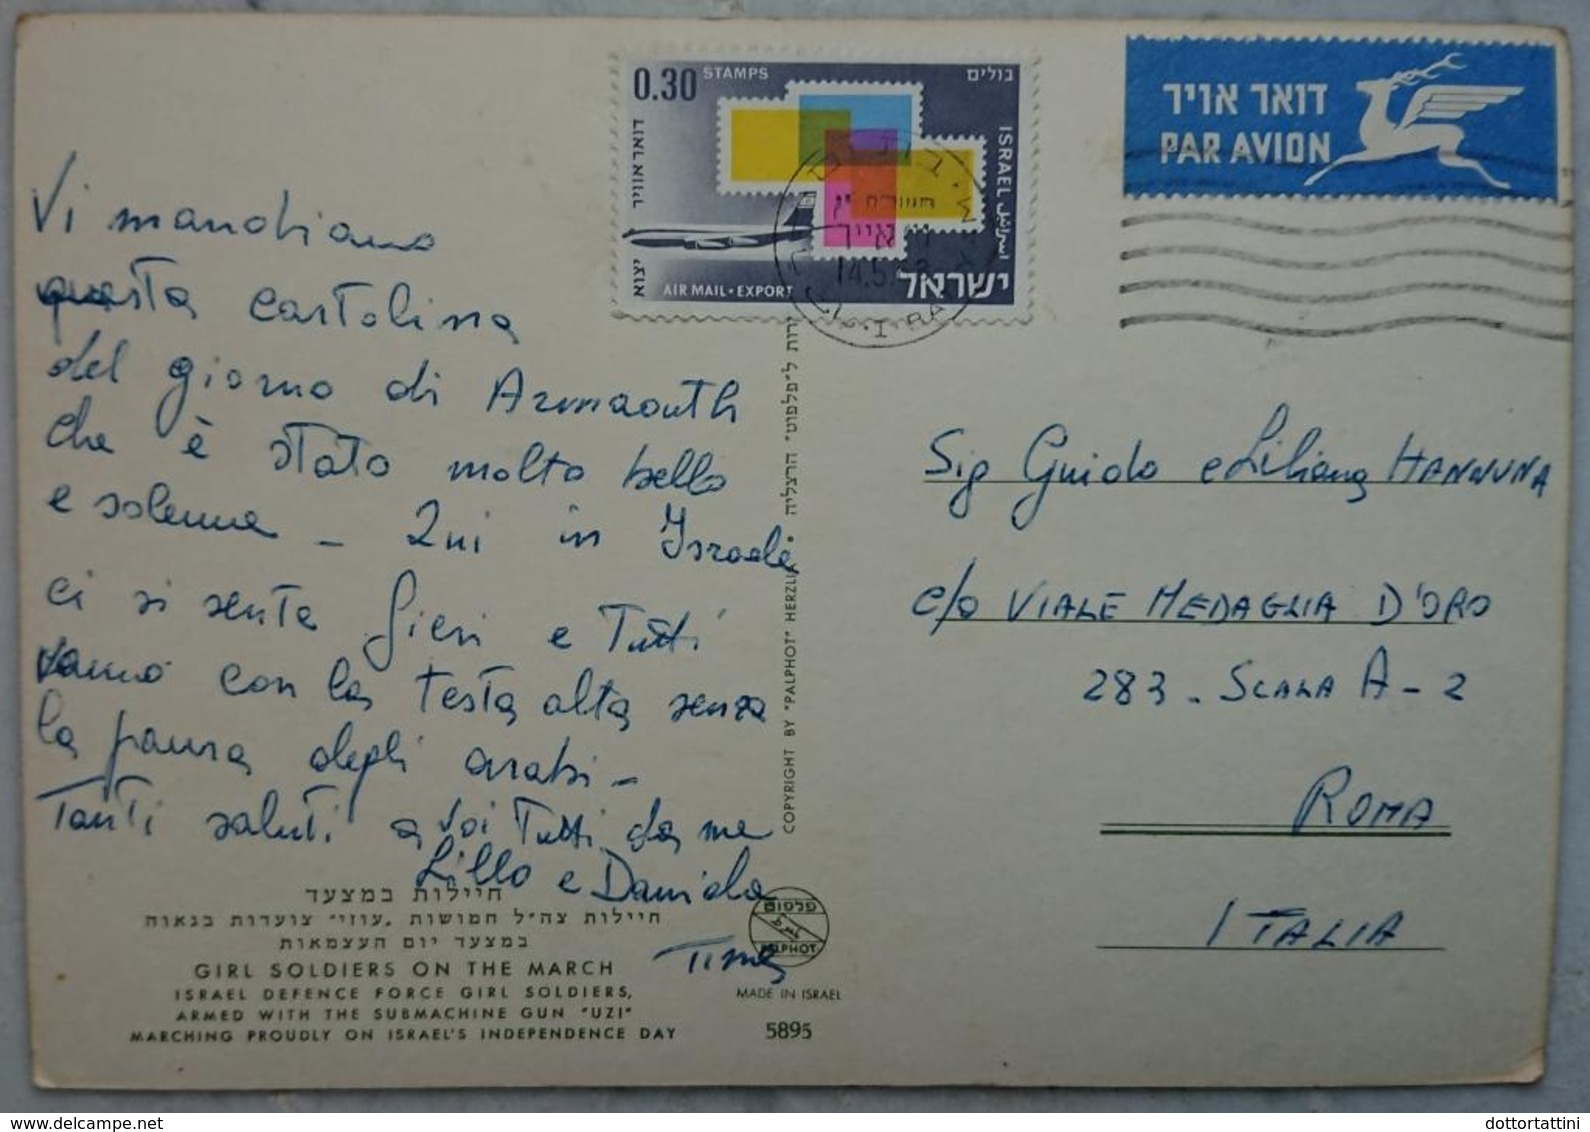 0.30 STAMPS בולים
דואר אוויר
יצוא
ISRAEL اسرائيل
AIR MAIL • EXPORT
ישראל
14.5.68
דואר אויר
PAR AVION
Vi mandiamo
questa cartolina
del giorno di Azmaouth
che è stato molto bello
e solenne - Qui in Israele
ci si sente fieri e tutti
vanno con la testa alta senza
la paura degli arabi -
Tanti saluti a voi tutti da me
Lillo e Daniela
Tina
Sig Guido e Liliana HANNUNA
c/o VIALE MEDAGLIA D'ORO
283 - SCALA A - 2
ROMA
ITALIA
COPYRIGHT BY "PALPHOT" HERZLI • ל"פלפוט" הרצליה
חיילות במצעד
חיילות צה"ל חמושות "עוזי" צועדות בגאוה
במצעד יום העצמאות
GIRL SOLDIERS ON THE MARCH
ISRAEL DEFENCE FORCE GIRL SOLDIERS,
ARMED WITH THE SUBMACHINE GUN "UZI"
MARCHING PROUDLY ON ISRAEL'S INDEPENDENCE DAY
פלפוט
PALPHOT
MADE IN ISRAEL
5895
dottortattini